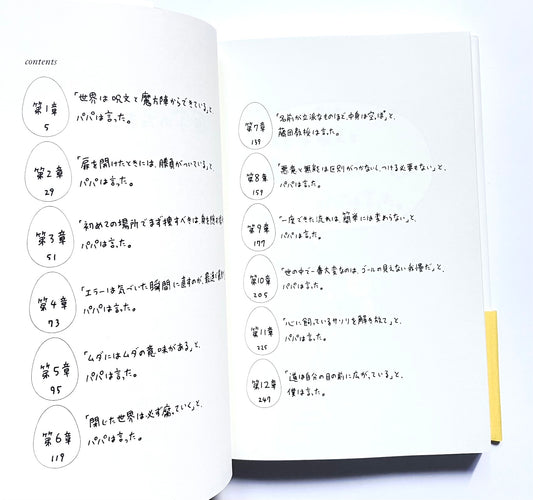 contents
第1章
5
「世界は呪文と魔方陣からできている」と、
パパは言った。
第2章
29
「扉を開けたときには、勝負がついている」と、
パパは言った。
第3章
51
「初めての場所でまず捜すべきは、身を隠
パパは言った。
第4章
73
「エラーは気づいた瞬間に直すのが、最速に
パパは言った。
第5章
95
「ムダにはムダの意味がある」と、
パパは言った。
第6章
119
「閉じた世界は必ず腐っていく」と、
パパは言った。
第7章
139
「名前が立派なものほど、中身は空っぽ」と、
藤田教授は言った。
第8章
159
「悪意と無能は区別がつかないし、つける必要もない」と、
パパは言った。
第9章
177
「一度できた流れは、簡単には変わらない」と、
パパは言った。
第10章
205
「世の中で一番大変なのは、ゴールの見えない我慢だ」と、
パパは言った。
第11章
225
「心に飼っているサソリを解き放て」と、
パパは言った。
第12章
247
「道は自分の目の前に広がっている」と、
僕は言った。